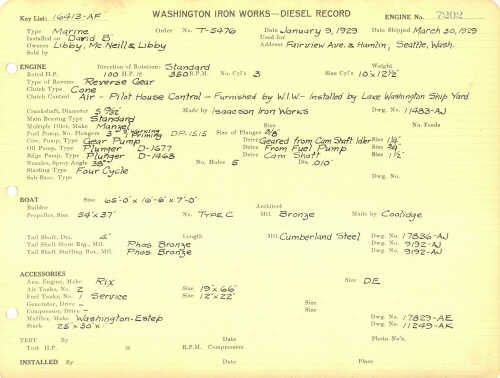 Key List: 16413-AF WASHINGTON IRON WORKS—DIESEL RECORD ENGINE NO. 7202
Type Marine Order No. T-5476 Date January 9, 1929 Date Shipped March 30, 1929
Installed on David B Used for
Owners Libby, Mc Neill & Libby Address Fairview Ave. & Hamlin, Seattle, Wash.
ENGINE Direction of Rotation: Standard
Rated H.P. 100 H.P. @ 350 R.P.M. No. Cyl's 3 Size Cyl's 10"x12½"
Type of Reverse Reverse Gear
Clutch Type Cone
Clutch Control Air - Pilot House Control - Furnished by W.I.W. - Installed by Lake Washington Ship Yard
Crankshaft, Diameter 5 Made by Isaacson Iron Works Dwg. No. 11483-AJ
Main Bearing Type Standard
Multiple Oiler, Make Manzel No. Feeds
Fuel Pump, No. Plungers 3 Working Priming D.P. 1515 Size of Plunger 3/8"
Circ. Pump, Type Gear Pump Drive Geared from Cam Shaft Idler 1¼"
Oil Pump, Type Plunger D-1677 Drive From Fuel Pump ¾"
Bilge Pump, Type Plunger D-1468 Drive Cam Shaft 1½"
Nozzles, Spray Angle 38° No. Holes 5 Dia. .010"
Starting Type Four Cycle
Sub Base, Type Dwg. No.
BOAT Size 65'-0" x 16'-6" x 7'-0"
Builder Architect
Propeller, Size 54"x37" No. Type C Mtl. Bronze Made by Coolidge
Tail Shaft, Dia. 4" Length Mtl. Cumberland Steel Dwg. No. 17836-AJ
Tail Shaft Stem Brg., Mtl. Phos. Bronze Dwg. No. 9192-AJ
Tail Shaft Stuffing Box, Mtl. Phos. Bronze Dwg. No. 9192-AJ
ACCESSORIES
Aux. Engine, Make Rix Size DE
Air Tanks, No. 2 Size 19"x66"
Fuel Tanks, No. 1 Service Size 12"x22"
Generator, Drive - Size
Compressor, Drive - Size
Muffler, Make Washington-Estep Dwg. No. 17829-AE
Stack Dwg. No. 11249-AK
TEST By Date Photo No's.
Test H.P. @ R.P.M. Compression
INSTALLED By Date Place